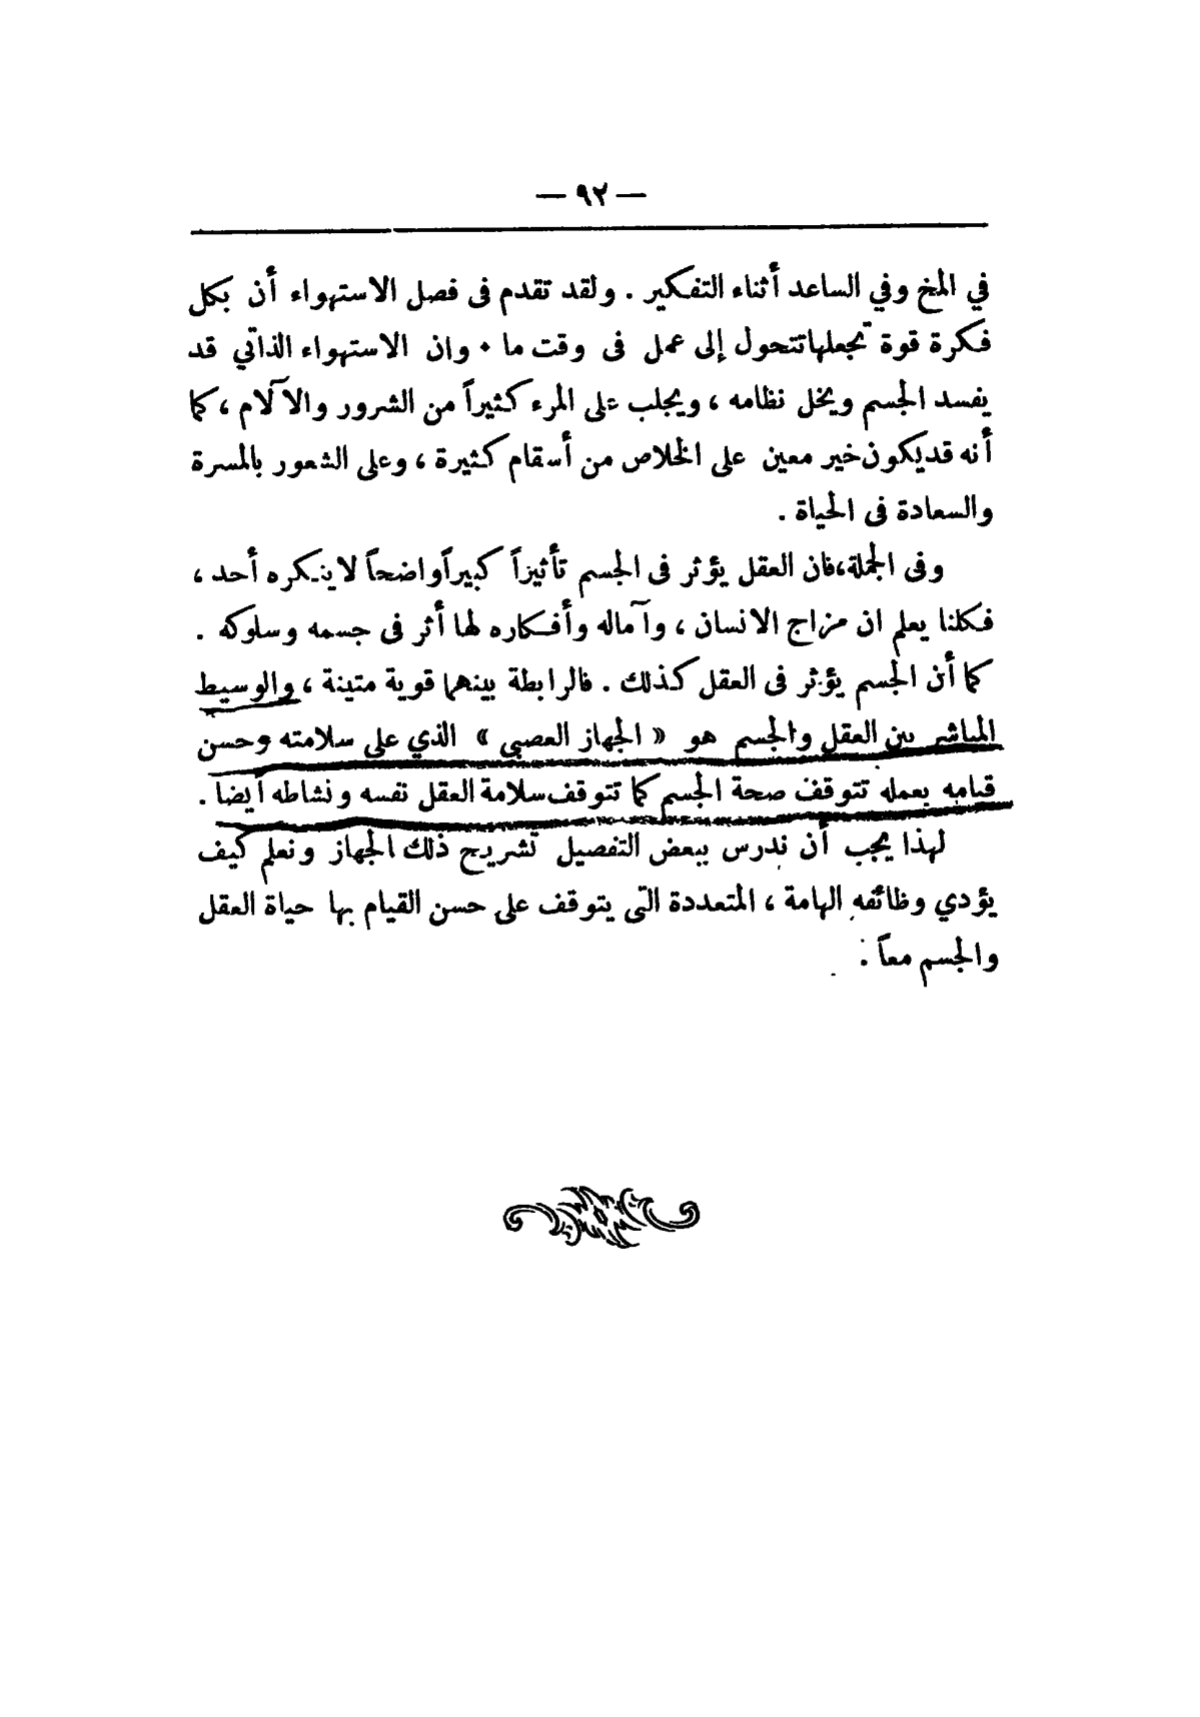 — ٩٢ —
في المخ وفي الساعد أثناء التفكير . ولقد تقدم فى فصل الاستهواء أن بكل
فكرة قوة تجعلها تتحول إلى عمل فى وقت ما . وان الاستهواء الذاتي قد
يفسد الجسم ويخل نظامه ، ويجلب على المرء كثيراً من الشرور والآلام ، كما
أنه قد يكون خير معين على الخلاص من أسقام كثيرة ، وعلى الشعور بالمسرة
والسعادة فى الحياة .
وفى الجملة، فان العقل يؤثر فى الجسم تأثيراً كبيراً واضحاً لا ينكره أحد ،
فكلنا يعلم ان مزاج الانسان ، وآماله وأفكاره لها أثر فى جسمه وسلوكه .
كما أن الجسم يؤثر فى العقل كذلك . فالرابطة بينهما قوية متينة ، والوسيط
المباشر بين العقل والجسم هو « الجهاز العصبي » الذي على سلامته وحسن
قيامه بعمله تتوقف صحة الجسم كما تتوقف سلامة العقل نفسه ونشاطه أيضاً .
لهذا يجب أن ندرس ببعض التفصيل تشريح ذلك الجهاز ونعلم كيف
يؤدي وظائفه الهامة ، المتعددة التى يتوقف على حسن القيام بها حياة العقل
والجسم معاً .